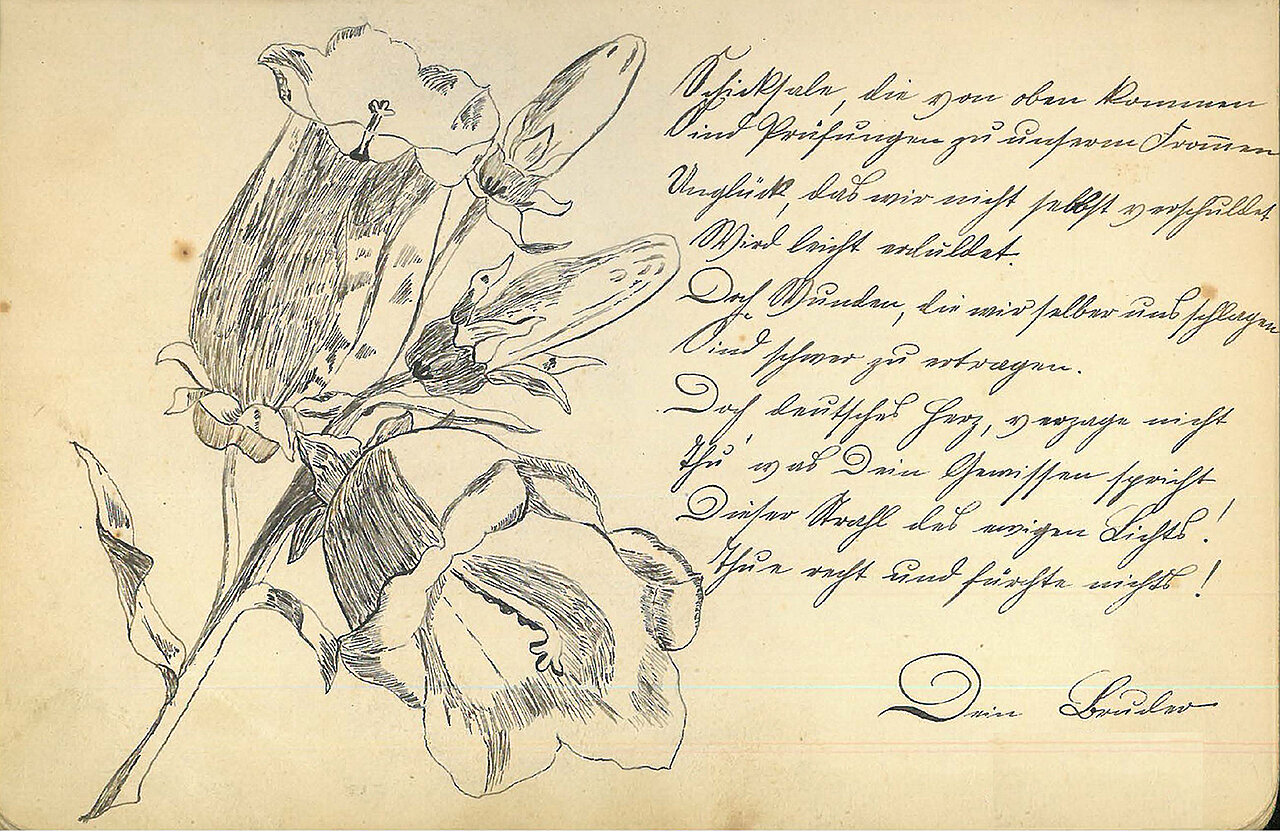 Schicksale, die von oben kommen
Sind Prüfungen zu unserm Frommen
Unglück, das wir nicht selbst verschuldet
Wird leicht erduldet.
Doch Wunden, die wir selber uns schlagen
Sind schwer zu ertragen.
Doch deutsches Herz, verzage nicht
Thu' was Dein Gewissen spricht
Dieser Strahl des ewigen Lichts!
Thue recht und fürchte nichts!
Dein Bruder